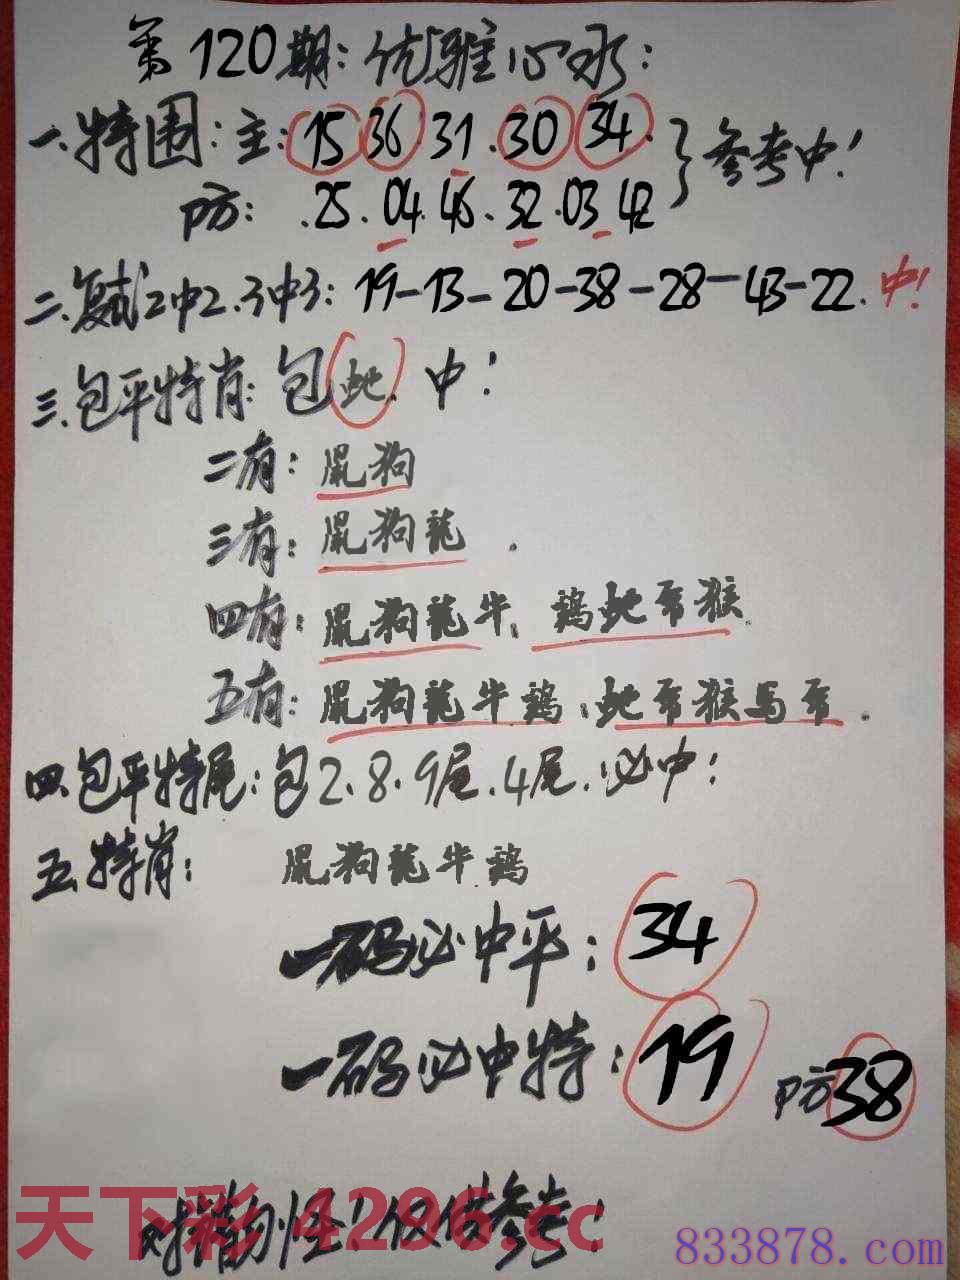 第120期:优雅心水:
一.特围:主:15 36.31.30 34.}参考中!
防:.25.04.46.32.03 42
二.复试2中2.3中3:19-13-20-38-28-43-22.中!
三.包平特肖:包蛇.中!
二有:鼠狗
三有:鼠狗龍.
四有:鼠狗龍牛、鷄蛇
五有:鼠狗龍牛鷄、蛇
四.包平特尾:包2.8.9尾.4尾.必中!
五.特肖:鼠狗龍牛鷄
一码必中平:34
一码必中特:19 防38
仅供参考!
天下彩 4296.cc
833878.com